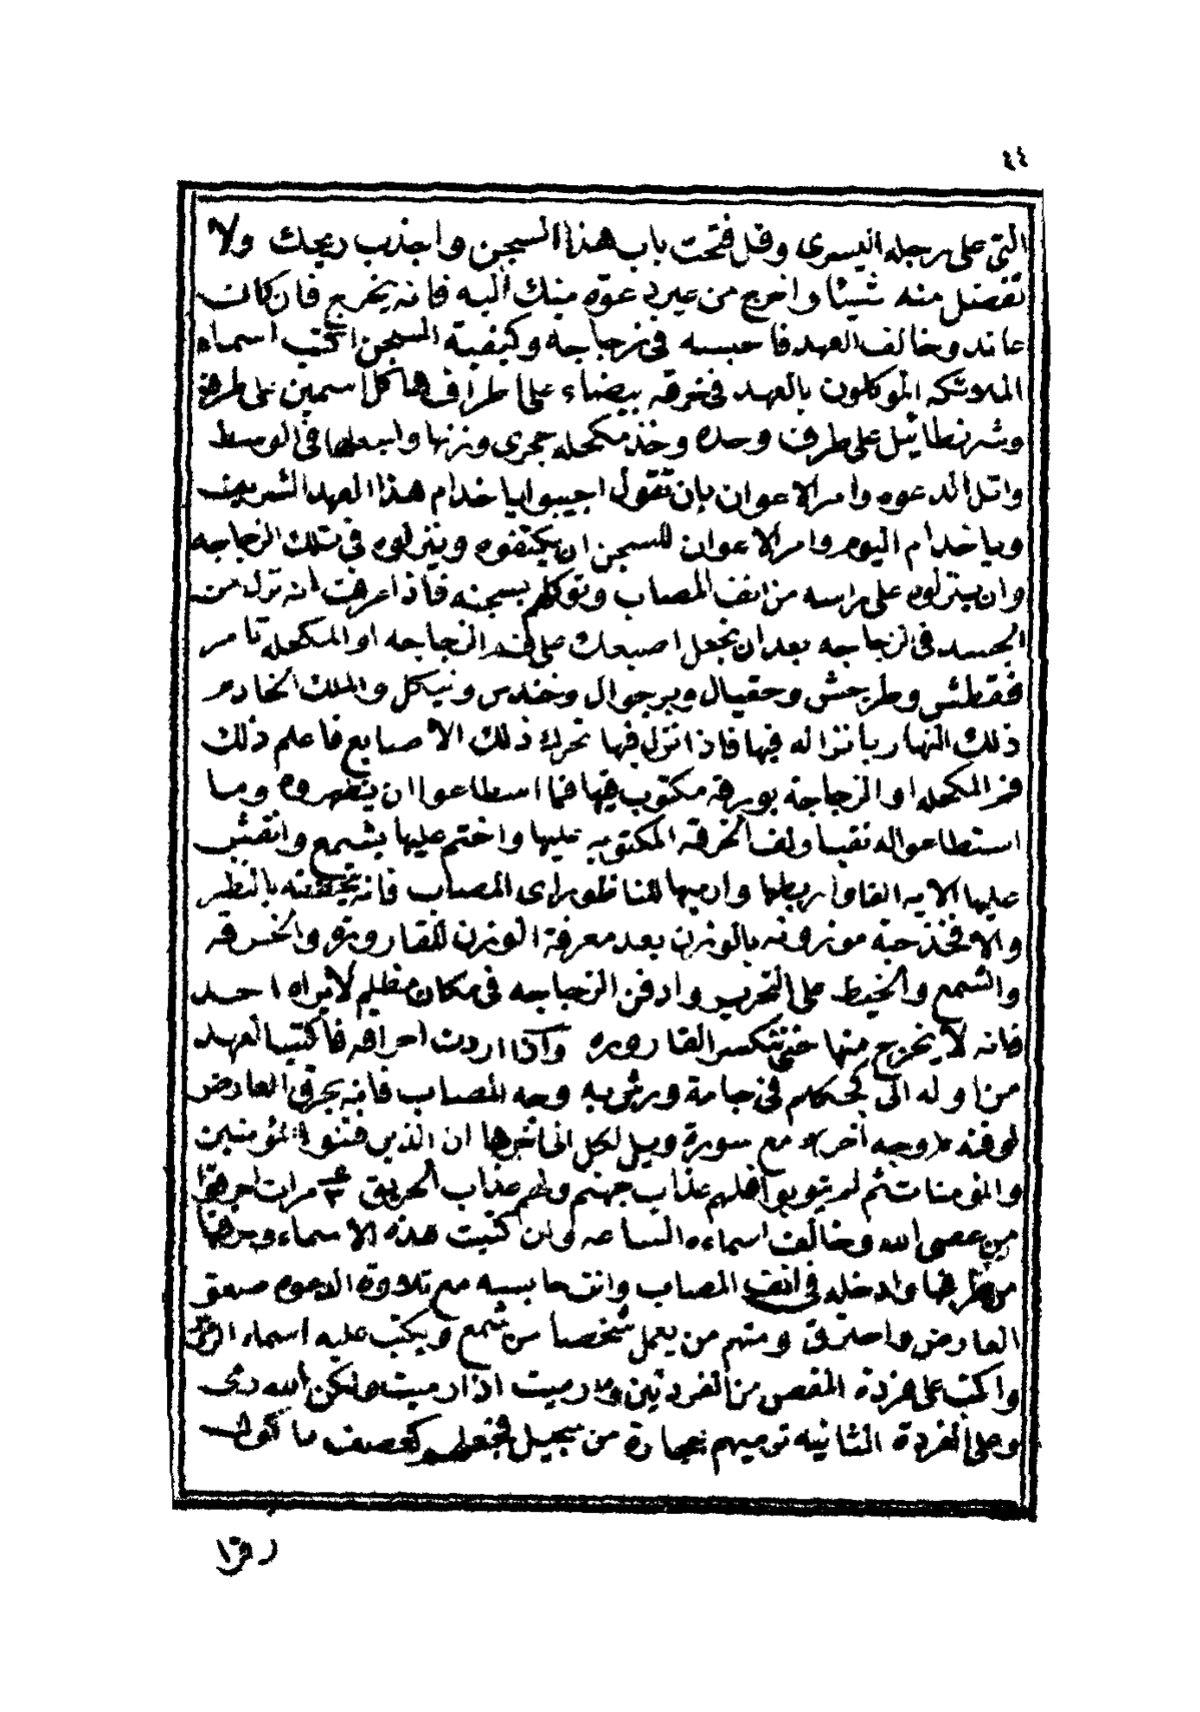 ٤٤
التى على رجله اليسرى وقل فتحت باب هذا السجن واجذب ريحك ولا
تفضل منه شيئا واخرج من غير دعوه منك اليه فانه يخرج فان كان
عاند وخالف العهد فاحبسه فى زجاجة وكيفية السجن اكتب اسماء
الملائكه الموكلون بالعهد فى خرقه بيضاء على اطراف ها كل اسمين على طرف
وشرنطائيل على طرف وحده وخذ مكحله حجرى وزنها واجعلها فى الوسط
واتل الدعوه وامر الاعوان بان تقول اجيبوا ياخدام هذا العهد الشريف
وياخدام اليوم وامر الاعوان للسجن ان يكتفوه وينزلوه فى تلك الزجاجه
وان ينزلوه على راسه من انف المصاب وتوكلهم بسجنه فاذا عرفت انه نزل من
الجسد فى الزجاجه بعد ان تجعل اصبعك على فم الزجاجه او المكحله تامر
فقطش وطرحش وحقيال وبرجوال وخندس ونيكل والملك الخادم
ذلك النهار بانزاله فيها فاذا نزل فيها تحرك ذلك الاصابع فاعلم ذلك
فم المكحله او الزجاجة بورقه مكتوب فيها فما اسطاعوا ان يظهروه وما
استطاعوا له نقبا ولف الخرقه المكتوبه عليها واختم عليها بشمع وانقش
عليها الايه الفا واربطها وارميها للناظور اى المصاب فانه يحققه بالنظر
والا فخذ حبة موزونه بالوزن بعد معرفة الوزن للقارورة والخرقه
والشمع والخيط على التحرير وادفن الزجاجه فى مكان مظلم لا يراه احد
فانه لا يخرج منها حتى تتكسر القاروره واذا اردت احراقه فاكتب العهد
من اوله الى لحكم فى جامة ورش به وجه المصاب فانه يحرق العارض
لوقته (وجه آخر) مع سورة ويل لكل الى اخرها ان الذين فتنوا المؤمنين
والمؤمنات ثم لم يتوبوا فلهم عذاب جهنم ولهم عذاب الحريق مرات احرقوا
من عصى الله وخالف اسماءه الساعه وان كتبت هذه الاسماء وحرقها
من طرفها وادخله فى انف المصاب وانت حابسه مع تلاوة الدعوه صعق
العارض واحترق ومنهم من يعمل شخصا من شمع ويكتب عليه اسماء
واكتب على فردة المقص من الفردتين وما رميت اذ رميت ولكن الله رمى
وعلى الفردة الثانيه ترميهم بحجارة من سجيل فجعلهم كعصف مأكول